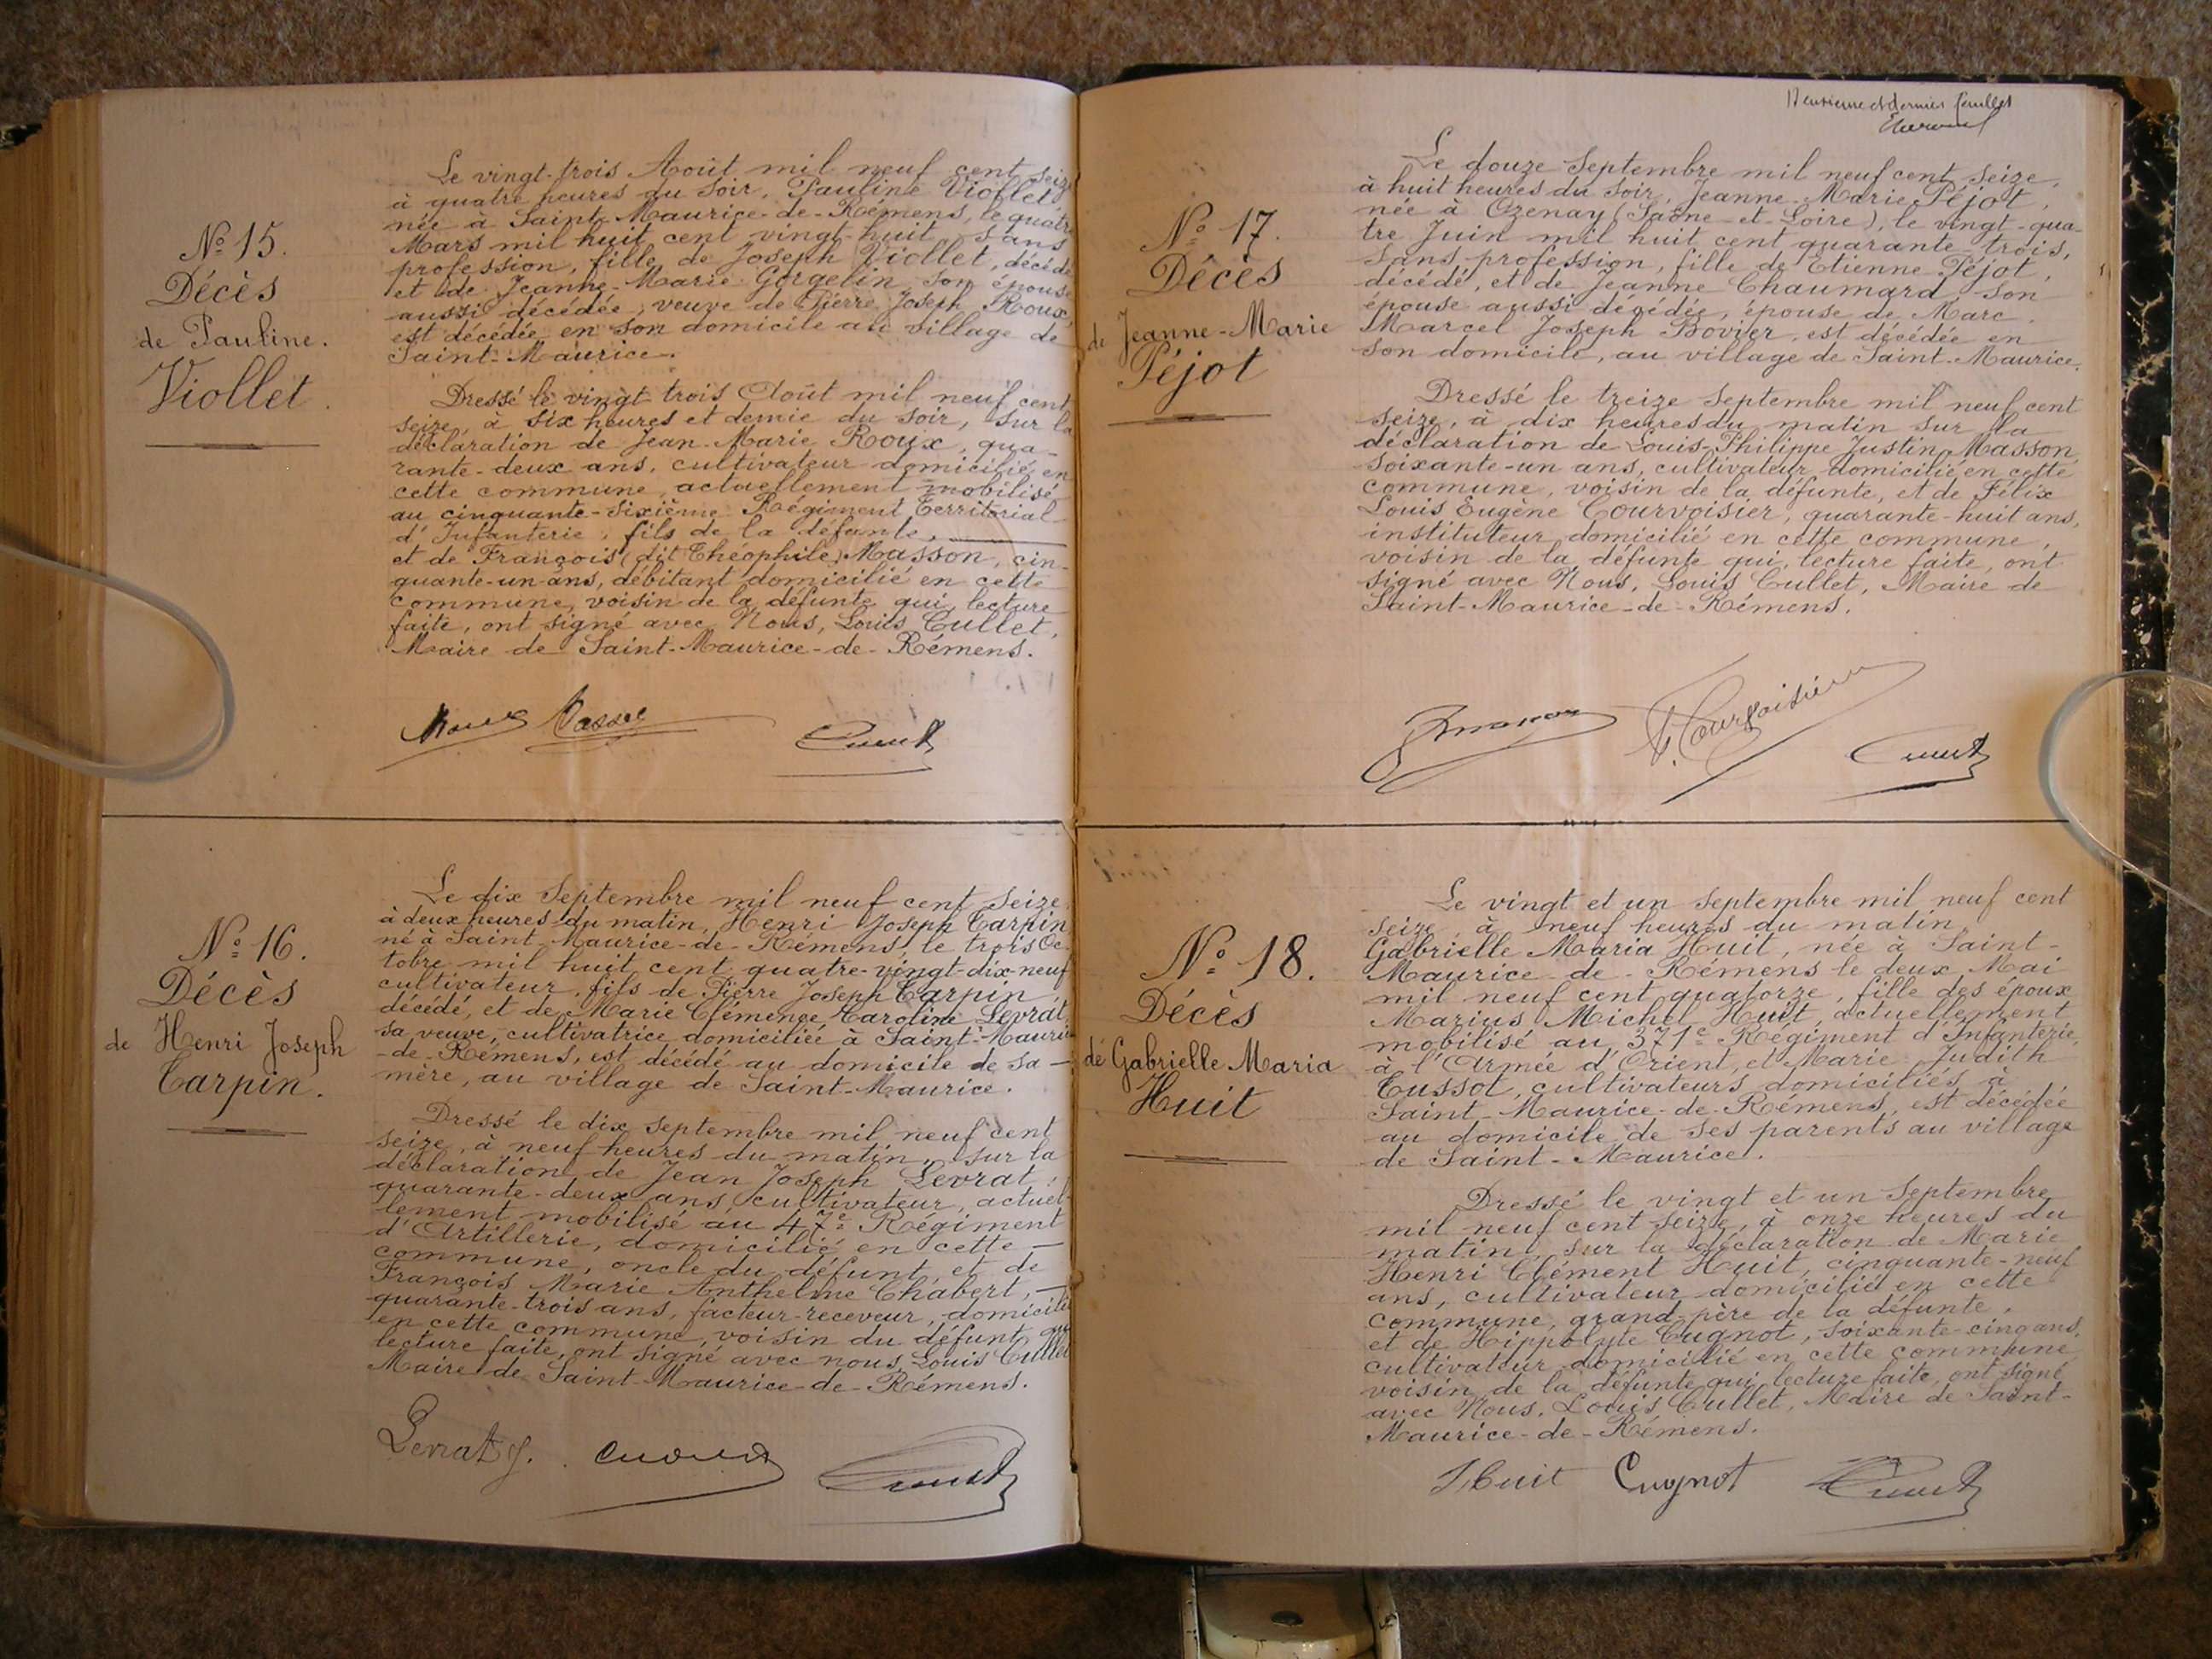 Nº 15.
Décès
de Pauline.
Viollet.
Le vingt-trois Août mil neuf cent seize
à quatre heures du soir, Pauline Viollet
née à Saint-Maurice-de-Rémens, le quatre
Mars mil huit cent vingt-huit, sans
profession, fille de Joseph Viollet, décédé
et de Jeanne-Marie Gorgelin, son épouse
aussi décédée, veuve de Pierre Joseph Roux,
est décédée en son domicile au village de
Saint-Maurice.
Dressé le vingt trois Août mil neuf cent
seize, à six heures et demie du soir, sur la
déclaration de Jean-Marie Roux, qua-
rante-deux ans, cultivateur domicilié en
cette commune, actuellement mobilisé
au cinquante-sixième Régiment Territorial
d'Infanterie, fils de la défunte,
et de François (dit Théophile) Masson, cin-
quante-un-ans, débitant domicilié en cette
commune, voisin de la défunte qui, lecture
faite, ont signé avec Nous, Louis Cullet,
Maire de Saint-Maurice-de-Rémens.
Nº 16.
Décès
de Henri Joseph
Carpin.
Le dix Septembre mil neuf cent seize
à deux heures du matin, Henri Joseph Carpin
né à Saint-Maurice-de-Rémens, le trois Oc-
tobre mil huit cent quatre-vingt-dix-neuf
cultivateur, fils de Pierre Joseph Carpin,
décédé, et de Marie Clémence Caroline Levrat,
sa veuve, cultivatrice domiciliée à Saint-Maurice
-de-Rémens, est décédé au domicile de sa
mère, au village de Saint-Maurice.
Dressé le dix Septembre mil neuf cent
seize, à neuf heures du matin, sur la
déclaration de Jean Joseph Levrat,
quarante-deux ans, cultivateur, actuel-
lement mobilisé au 47e Régiment
d'Artillerie, domicilié en cette
commune, oncle du défunt, et de
François Marie Anthelme Chabert,
quarante-trois ans, facteur-receveur, domicilié
en cette commune, voisin du défunt qui
lecture faite, ont signé avec nous, Louis Cullet
Maire de Saint-Maurice-de-Rémens.
Levrat J.
Deuxième et dernier feuillet
Nº 17.
Décès
de Jeanne-Marie
Péjot
Le douze Septembre mil neuf cent seize,
à huit heures du soir, Jeanne-Marie Péjot,
née à Ozenay (Saône-et-Loire), le vingt-qua-
tre Juin mil huit cent quarante-trois,
sans profession, fille de Etienne Péjot,
décédé, et de Jeanne Chaumard, son
épouse aussi décédée, épouse de Marc
Marcel Joseph Bovier, est décédée en
son domicile, au village de Saint-Maurice.
Dressé le treize Septembre mil neuf cent
seize, à dix heures du matin sur la
déclaration de Louis-Philippe Justin Masson
soixante-un ans, cultivateur domicilié en cette
commune, voisin de la défunte, et de Félix
Louis Eugène Courvoisier, quarante-huit ans,
instituteur domicilié en cette commune,
voisin de la défunte qui, lecture faite, ont
signé avec Nous, Louis Cullet, Maire de
Saint-Maurice-de-Rémens.
F. Courvoisier
Nº 18.
Décès
de Gabrielle Maria
Huit
Le vingt et un Septembre mil neuf cent
seize, à neuf heures du matin,
Gabrielle Maria Huit, née à Saint-
Maurice-de-Rémens le deux Mai
mil neuf cent quatorze, fille des époux
Marius Michel Huit, actuellement
mobilisé au 371e Régiment d'Infanterie,
à l'Armée d'Orient, et Marie Judith
Tussot, cultivateurs domiciliés à
Saint-Maurice-de-Rémens, est décédée
au domicile de ses parents au village
de Saint-Maurice.
Dressé le vingt et un Septembre
mil neuf cent seize, à onze heures du
matin, sur la déclaration de Marie
Henri Clément Huit, cinquante-neuf
ans, cultivateur domicilié en cette
commune, grand-père de la défunte,
et de Hippolyte Cugnot, soixante-cinq ans,
cultivateur domicilié en cette commune
voisin de la défunte qui, lecture faite, ont signé
avec Nous, Louis Cullet, Maire de Saint-
Maurice-de-Rémens.
Huit Cugnot